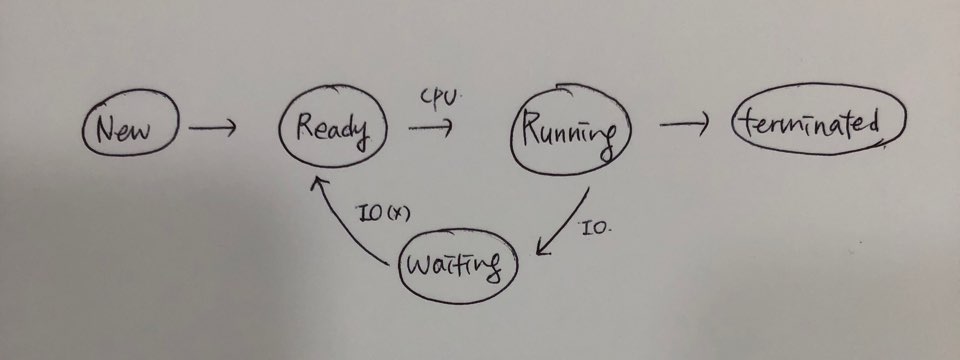 New
Ready
CPU.
Running
terminated
IO(x)
IO.
waiting